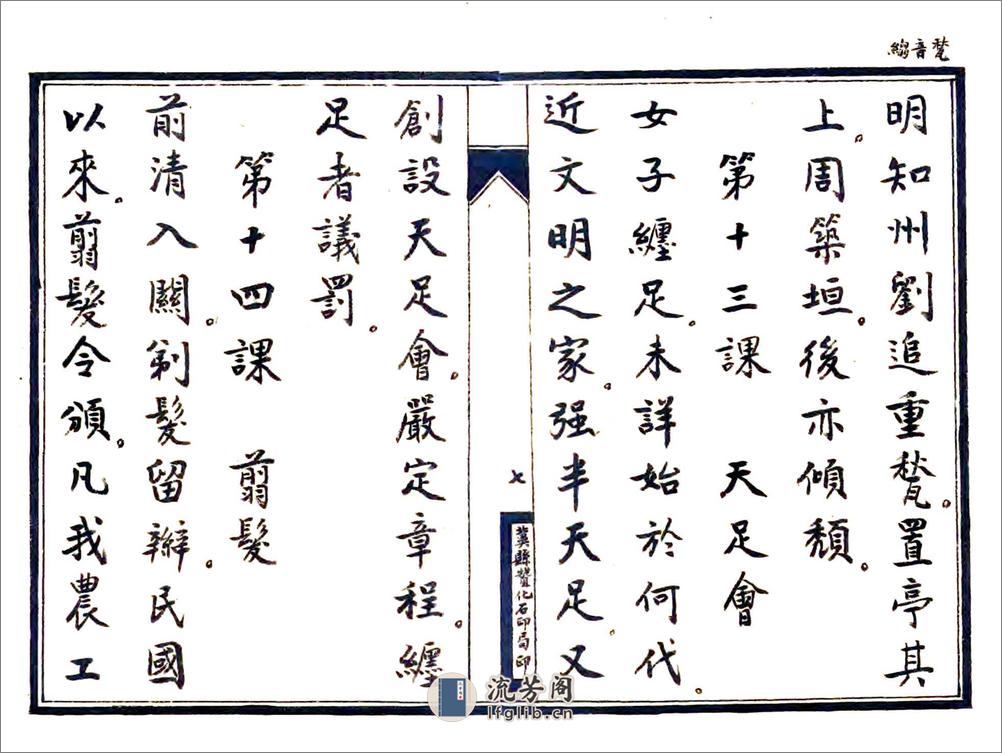 甃音縐
明知州劉追重甃。置亭其
上。周築垣。後亦傾頹。
第十三課 天足會
女子纏足。未詳始於何代。
近文明之家。强半天足。又
七
冀縣贊化石印局印
創設天足會。嚴定章程。纏
足者議罰。
第十四課 翦髮
前清入關。剃髮留辮。民國
以來。翦髮令頒。凡我農工
流芳阁
lfglib.cn